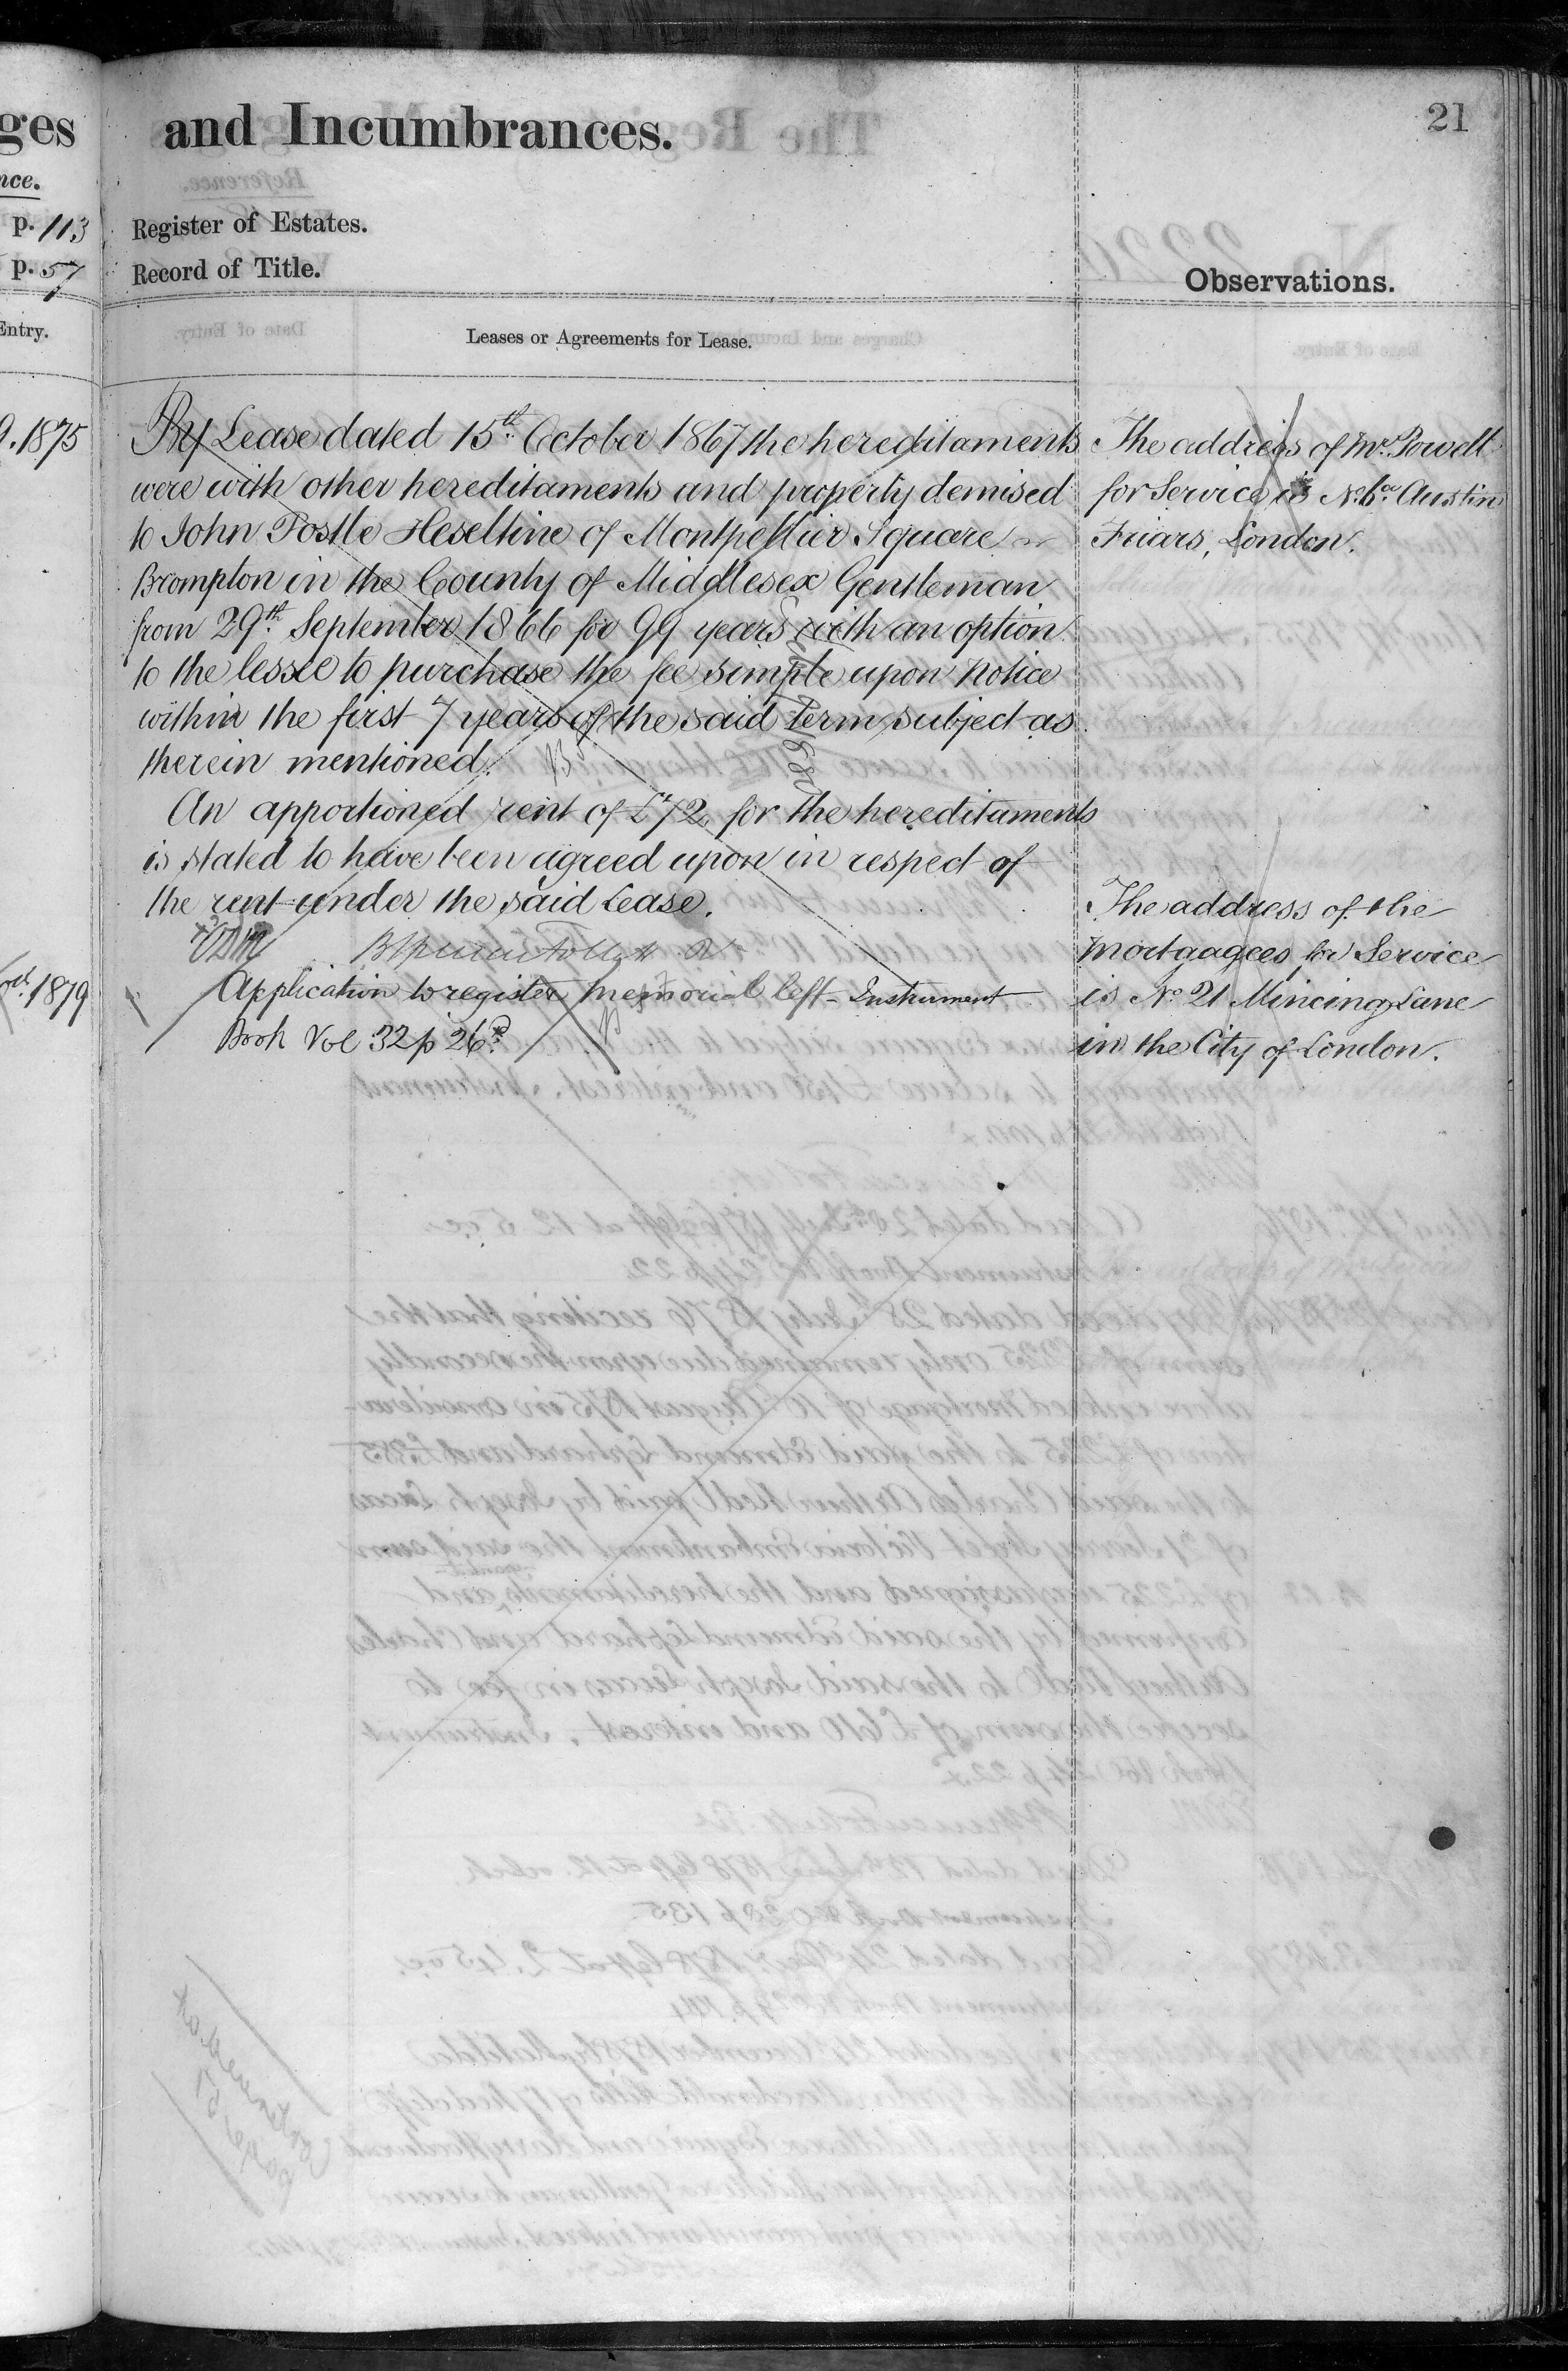 ges
nce.
p. 113
p. 57
Entry.
9. 1875
1879
and Incumbrances.
21
Register of Estates.
Record of Title.
Observations.
Leases or Agreements for Lease.
By Lease dated 15th October 1867 the hereditaments
were with other hereditaments and property demised
to John Postle Heseltine of Montpellier Square
Brompton in the County of Middlesex Gentleman
from 29th September 1866 for 99 years with an option
to the lessee to purchase the fee simple upon notice
within the first 7 years of the said term subject as
therein mentioned.
An apportioned rent of £72 for the hereditaments
is stated to have been agreed upon in respect of
the rent under the said Lease.
Application to register Memorial left - Instrument
Book Vol 32 p 26
The address of Mr. Powell
for Service is No. 6 Austin
Friars, London.
The address of the
Mortgagees for Service
is No 21 Mincing Lane
in the City of London.